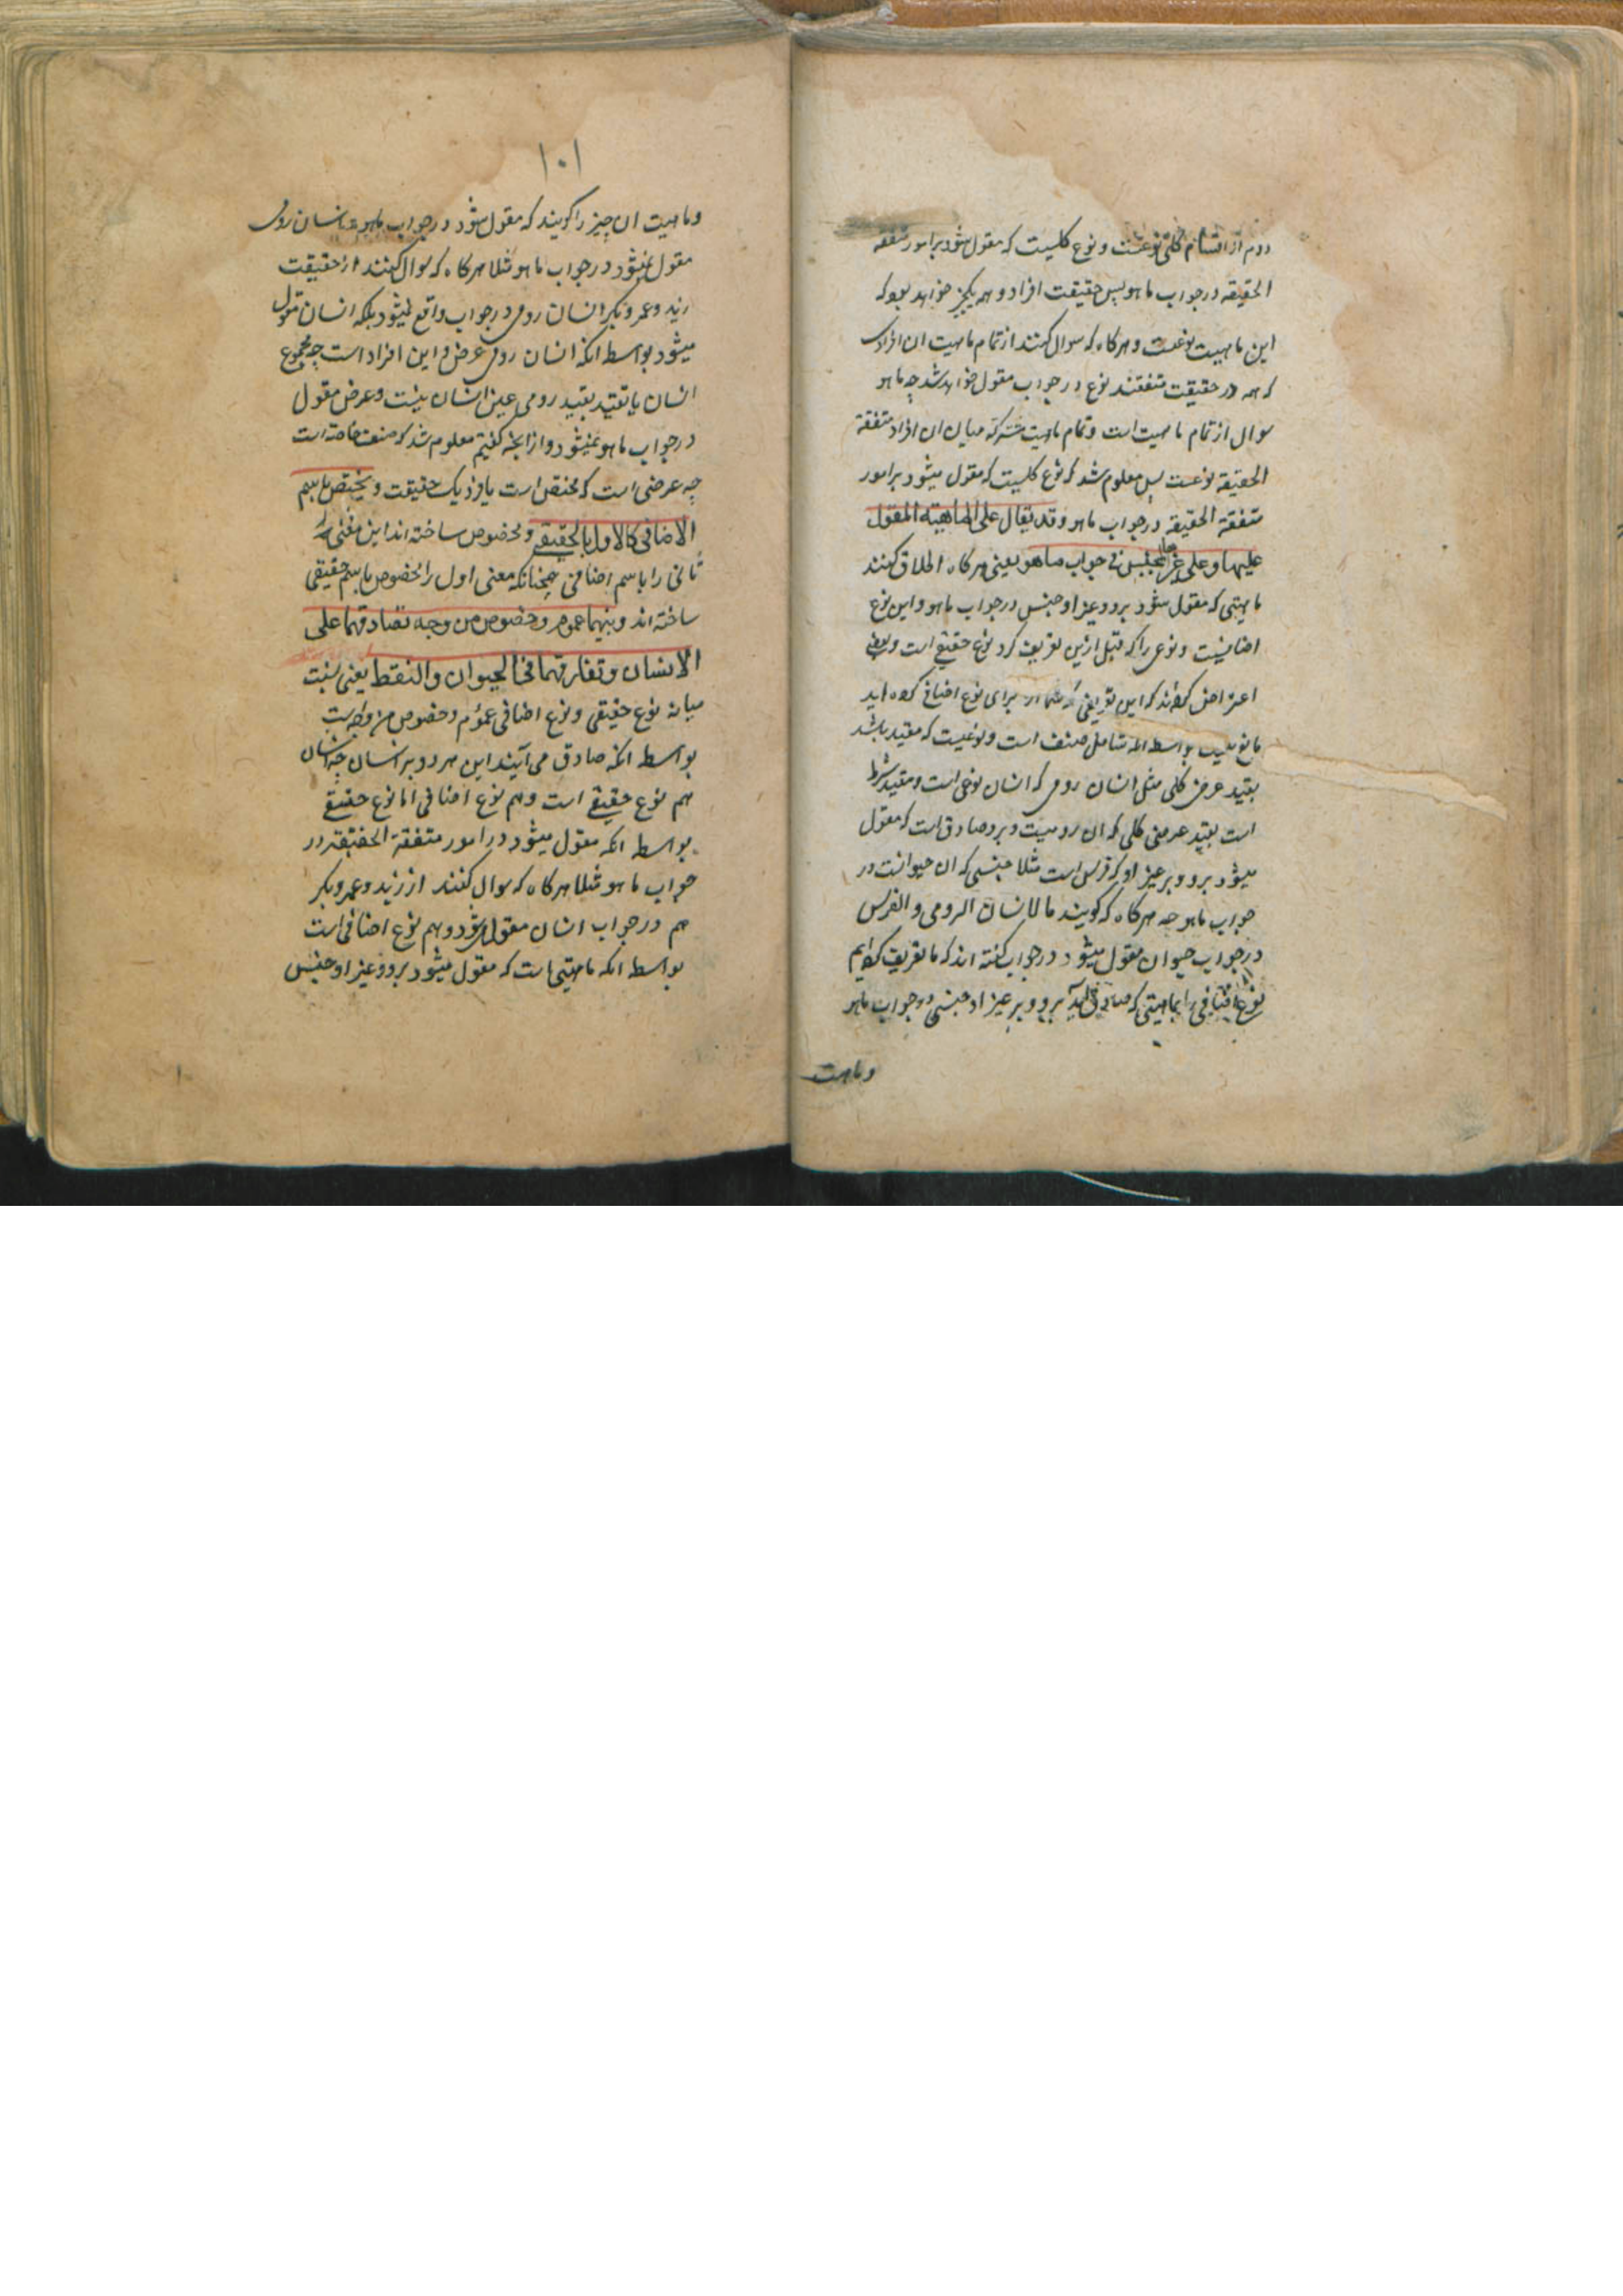 دوم از اقسام کلی نوعست و نوع کلیست که مقول میشود بر امور متفقه
الحقیقه در جواب ما هو پس حقیقت افراد و همه یکچیز خواهد بود که
این ماهیت نوعست و هرگاه که سوال کنند از تمام ماهیت ان افراد
که همه در حقیقت متفقند نوع در جواب مقول خواهد شد چه ما هو
سوال از تمام ماهیت است و تمام ماهیت مشترکه میان ان افراد متفقة
الحقیقه نوعست پس معلوم شد که نوع کلیست که مقول میشود بر امور
متفقة الحقیقه در جواب ما هو وقد یقال علی الماهیته المقول
علیها و علی غیرها الجنس فی جواب ما هو یعنی هرگاه اطلاق کنند
ماهیتی که مقول شود برو و غیر او جنس در جواب ما هو و این نوع
اضافیست و نوعی را که قبل ازین تعریف کرد نوع حقیقی است و بعضی
اعتراض کرده‌اند که این تعریفی که شما از برای نوع اضافی کرده‌اید
مانع نیست بواسطه انکه شامل صنف است و نوعیست که مقید باشد
بقید عرض کلی مثل انسان رومی که انسان نوعی است و مقید
است بقید عرضی کلی که ان رومیت و برو صادق است که مقول
میشود برو و بر غیر او که فرس است مثلا جنسی که ان حیوانست در
جواب ما هو چه هرگاه که گویند ما الانسان الرومی و الفرس
در جواب حیوان مقول میشود در جواب گفته اند که ما تعریف کرده‌ایم
نوع اضافی را بماهیتی که صادق آید برو و بر غیر او جنسی در جواب ما هو
وماهیت
۱۰۱
وماهیت ان چیز را گویند که مقول شود در جواب ما هو و انسان رومی
مقول نمیشود در جواب ما هو مثلا هرگاه که سوال کنند از حقیقت
زید و عمرو و بکر انسان رومی در جواب واقع نمیشود بلکه انسان مقول
میشود بواسطه انکه انسان رومی عرض این افراد است چه مجموع
انسان با تقید بقید رومی عین انسان نیست و عرض مقول
در جواب ما هو نمیشود و از انچه گفتیم معلوم شد که صنف خاصه است
چه عرضی است که مختص است بافراد یک حقیقت و یختص باسم
الاضافی کالاول بالحقیقی و مخصوص ساخته اند این معنی را
ثانی را باسم اضافی همچنانکه معنی اول را مخصوص باسم حقیقی
ساخته اند و بینهما عموم و خصوص من وجه لتصادقهما علی
الانسان و تفارقهما فی الحیوان و النقطة یعنی نسبت
میانه نوع حقیقی و نوع اضافی عموم و خصوص من وجه است
بواسطه انکه صادق می آیند این هر دو بر انسان چه انسان
هم نوع حقیقی است و هم نوع اضافی اما نوع حقیقی
بواسطه انکه مقول میشود در امور متفقة الحقیقه در
جواب ما هو مثلا هرگاه که سوال کنند از زید و عمرو و بکر
هم در جواب انسان مقول میشود و هم نوع اضافی است
بواسطه انکه ماهیتی است که مقول میشود برو و غیر او جنس